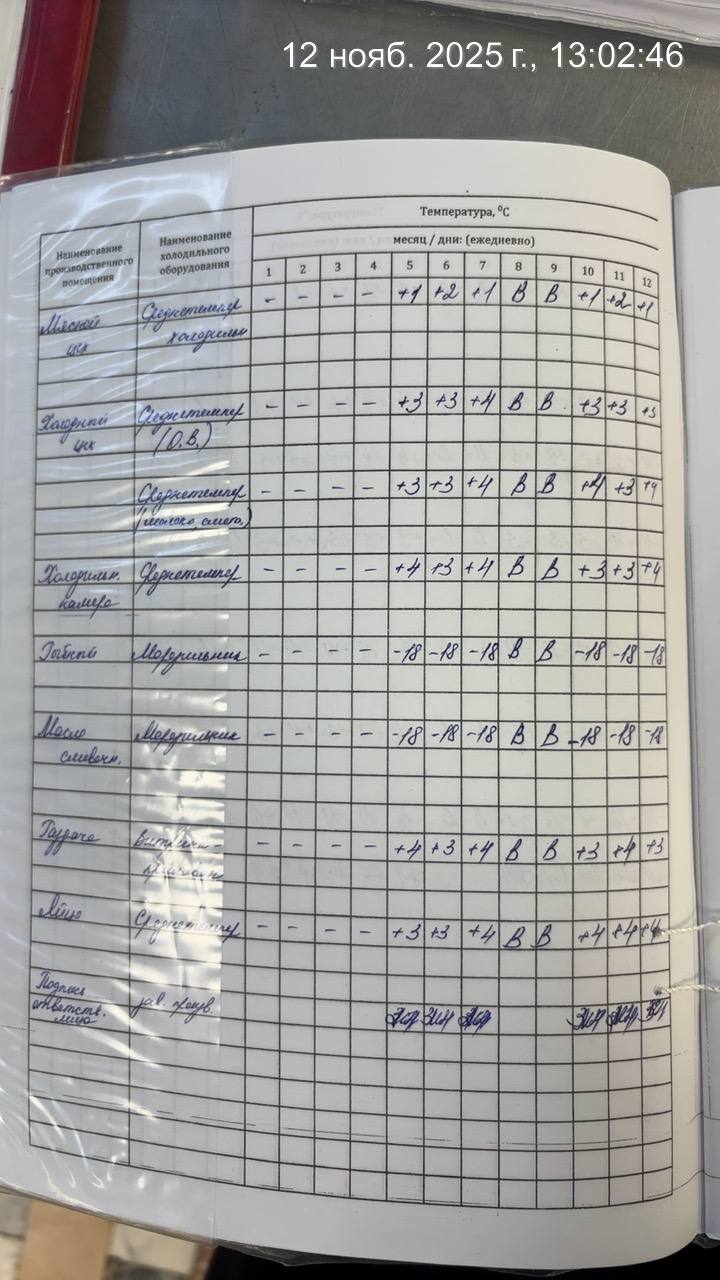 12 нояб. 2025 г., 13:02:46
Температура, ⁰С
Наименование производственного помещения
Наименование холодильного оборудования
месяц / дни: (ежедневно)
1 2 3 4 5 6 7 8 9 10 11 12
Мясной Среднетемпер - - - - +1 +2 +1 В В +1 +2 +1
цех холодильн
Холодный Среднетемпер - - - - +3 +3 +4 В В +3 +3 +3
цех (О.В.)
Среднетемпер - - - - +3 +3 +4 В В +4 +3 +4
(молоко, смет.)
Холодильн. Среднетемпер - - - - +4 +3 +4 В В +3 +3 +4
камера
Морозильник - - - - -18 -18 -18 В В -18 -18 -18
Масло Морозильник - - - - -18 -18 -18 В В -18 -18 -18
сливочн.
Раздача витрина - - - - - +4 +3 +4 В В +3 +4 +3
Яйцо Среднетемпер - - - - +3 +3 +4 В В +4 +4 +4
Подпись
ответств. зав. произв.
лица